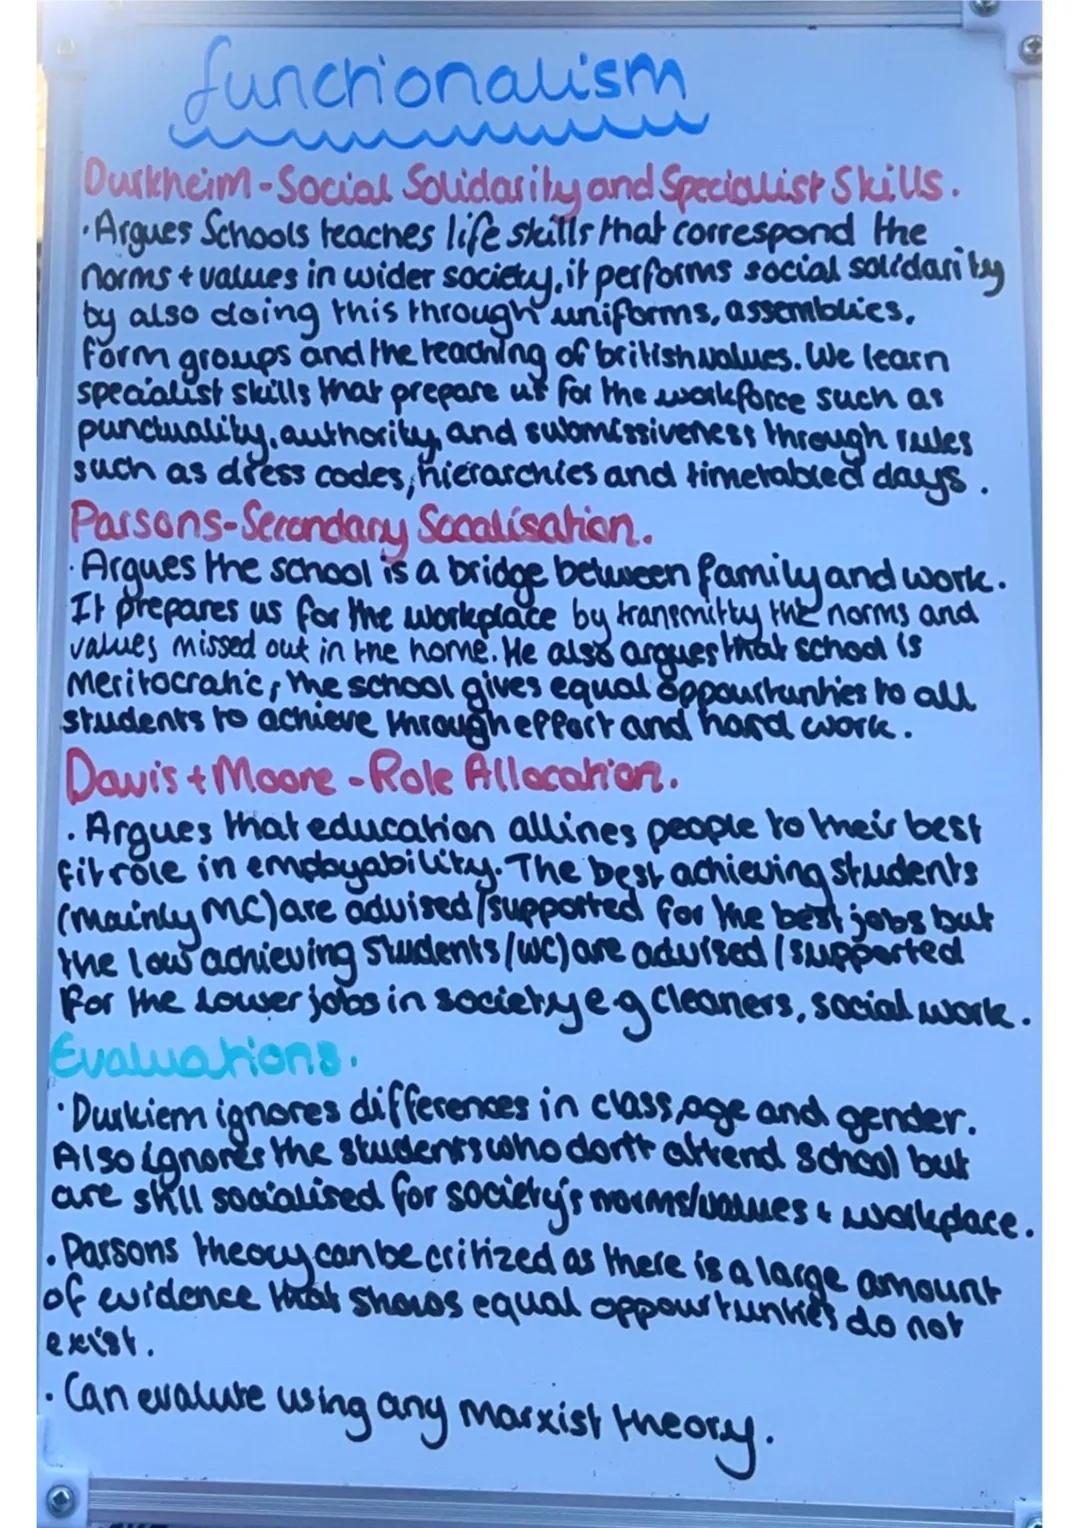 functionalism
Durkheim - Social Solidarity and Specialist Skills.
· Argues Schools teaches life skills that correspond the
norms + values in wider society, it performs social solidarity
by also doing this through uniforms, assemblies,
form groups and the teaching of british values. We learn
specialist skills that prepare us for the workforce such as
punctuality, authority and submissiveness through rules
such as dress codes, hierarchies and timetabled days.
Parsons - Secondary Socalisation.
· Argues the school is a bridge between family and work.
It prepares us for the workplace by transmitty the norms and
values missed out in the home. He also argues that school is
Meritocratic, the school gives equal oppourtunties to all
students to achieve through effort and hard work.
Davis + Moore - Role Allocation.
· Argues that education allines people to their best
fit role in employability. The best achieving students
(mainly MC) are advised/supported for the best jobs but
the low achieving students/(WC) are advised/supported
for the lower jobs in society e.g cleaners, social work.
Evaluations.
· Durkiem ignores differences in class, age and gender.
Also ignores the students who don't attend school but
are still socialised for society's norms/values + workplace.
· Parsons theory can be critized as there is a large amount
of evidence that shows equal oppourtunties do not
exist.
· Can evalute using any marxist theory.